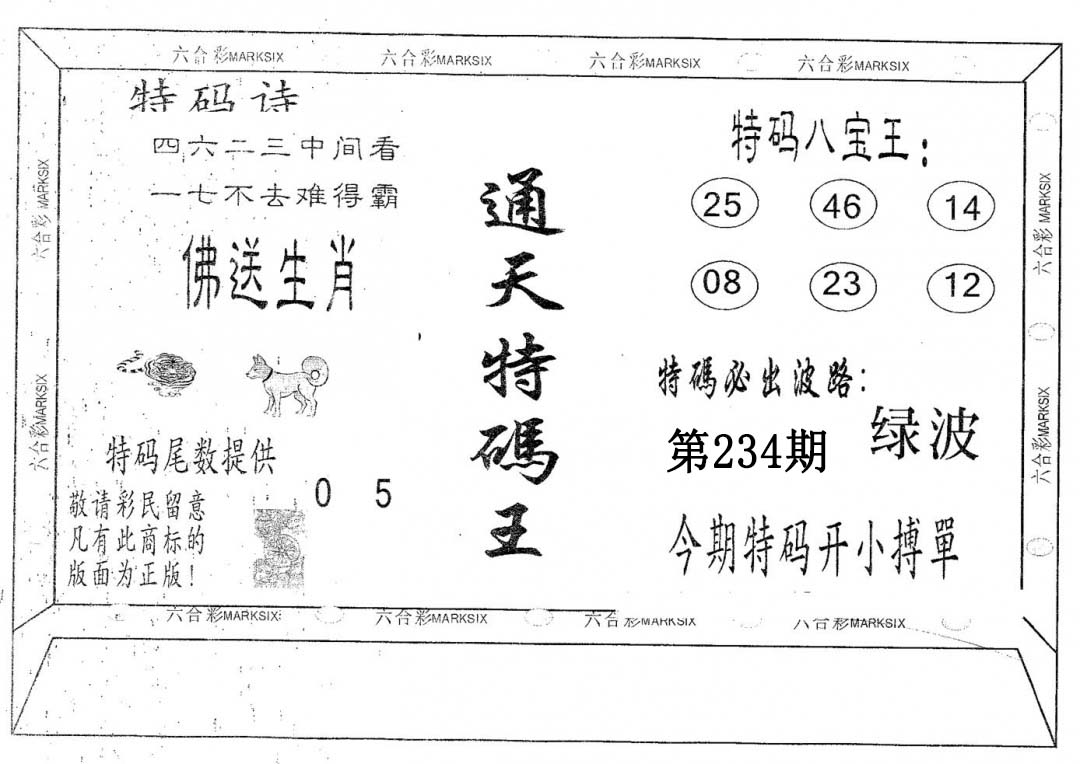 六合彩MARKSIX 六合彩MARKSIX 六合彩MARKSIX 六合彩MARKSIX
特码诗
四六二三中间看
一七不去难得霸
佛送生肖
特码尾数提供
0 5
敬请彩民留意
凡有此商标的
版面为正版！
通天特碼王
特码八宝王：
25 46 14
08 23 12
特碼必出波路：
绿波
第234期
今期特码开小搏單
六合彩MARKSIX
六合彩MARKSIX
六合彩MARKSIX
六合彩MARKSIX
六合彩MARKSIX 六合彩MARKSIX 六合彩MARKSIX 六合彩MARKSIX